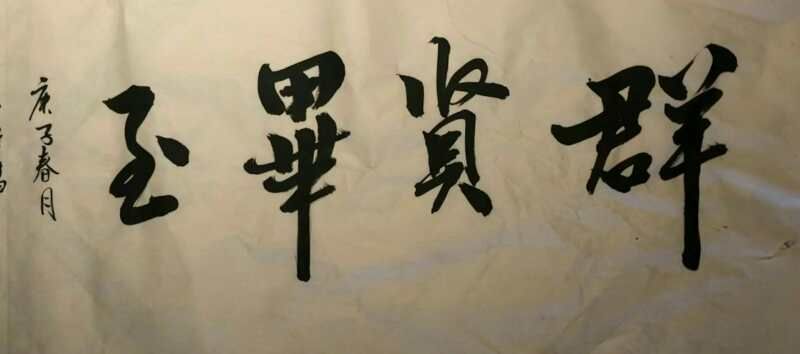 群賢畢至
庚子春月